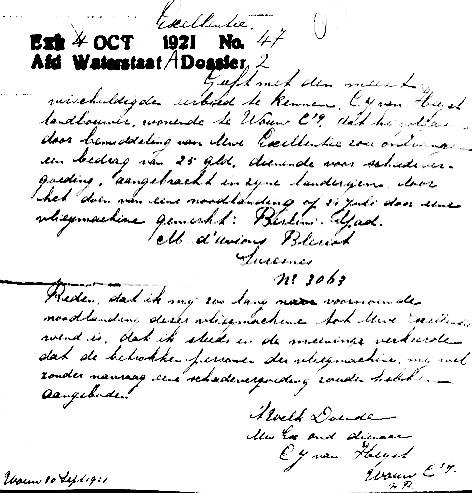 Excellentie.
Exh 4 OCT 1921 No. 47
Afd Waterstaat A Dossier 2
Geeft met den meest
verschuldigden eerbied te kennen, C Y van
landbouwer, wonende te Wouw dat hij
door bemiddeling van Uwe Excellentie zou
een bedrag van 25 gld, dienende voor schadever-
goeding, aangebracht in zijne landerijen door
het doen van eene noodlanding of 21 Juli door eene
vliegmachine gemerkt: Berlini
M d'avions Bleriot
Suresnes
No 3063
Reden, dat ik mij zoo lang naar voornoemde
noodlanding dezer vliegmachine tot Uwe Excellentie
wend is, dat ik steeds in de meening verkeerde
dat de betrokken personen der vliegmachine, mij wel
zonder navraag eene schadevergoeding zouden hebben
aangeboden
't Welk Doende
Uw Ex ond dienaar
C Y van
Wouw
N.B.
Wouw 20 Sept 1921